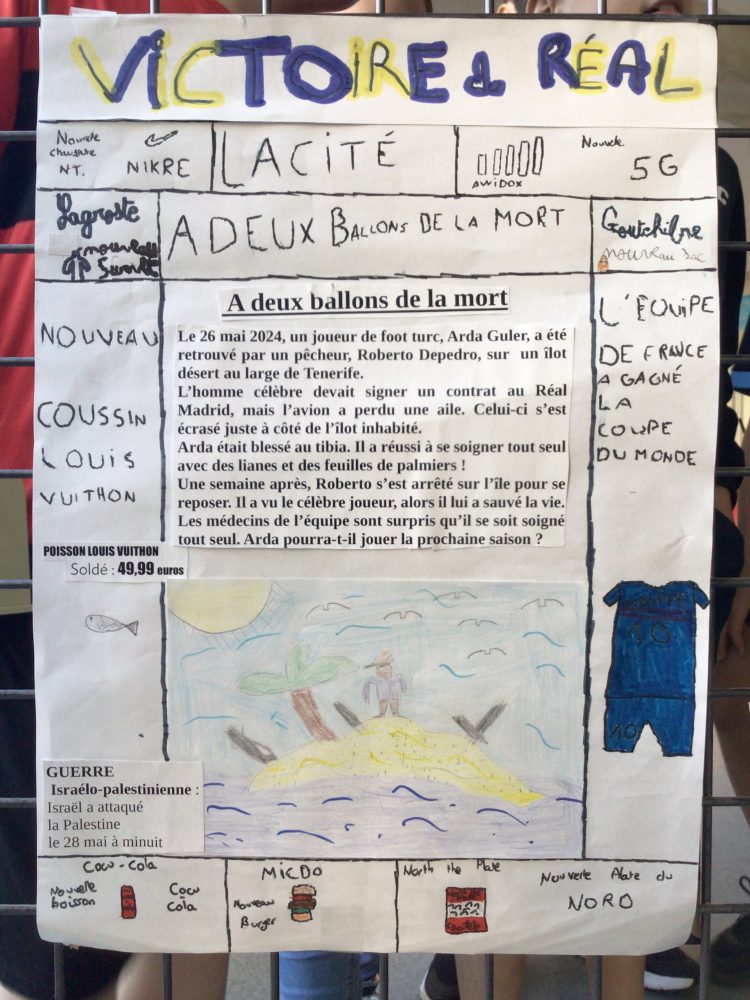 VICTOIRE d RÉAL
Nouvelle
chaussure
NT. NIKRE
LACITÉ
AWIDOX
Nouvele
5G
Lagroste
nouveau
A DEUX BALLONS DE LA MORT
Goutchibre
nouveau sac
A deux ballons de la mort
Le 26 mai 2024, un joueur de foot turc, Arda Guler, a été
retrouvé par un pêcheur, Roberto Depedro, sur un îlot
désert au large de Tenerife.
L'homme célèbre devait signer un contrat au Réal
Madrid, mais l'avion a perdu une aile. Celui-ci s'est
écrasé juste à côté de l'îlot inhabité.
Arda était blessé au tibia. Il a réussi à se soigner tout seul
avec des lianes et des feuilles de palmiers !
Une semaine après, Roberto s'est arrêté sur l'île pour se
reposer. Il a vu le célèbre joueur, alors il lui a sauvé la vie.
Les médecins de l'équipe sont surpris qu'il se soit soigné
tout seul. Arda pourra-t-il jouer la prochaine saison ?
NOUVEAU
COUSSIN
LOUIS
VUITHON
POISSON LOUIS VUITHON
Soldé : 49,99 euros
GUERRE
Israélo-palestinienne :
Israël a attaqué
la Palestine
le 28 mai à minuit
L'ÉQUIPE
DE FRANCE
A GAGNÉ
LA
COUPE
DU MONDE
10
10
Cocu-Cola
Nouvelle
boisson
Cocu
Cola
MICDO
Nouveau
Burger
North the Plate
Nouvelle Plate du
NORD